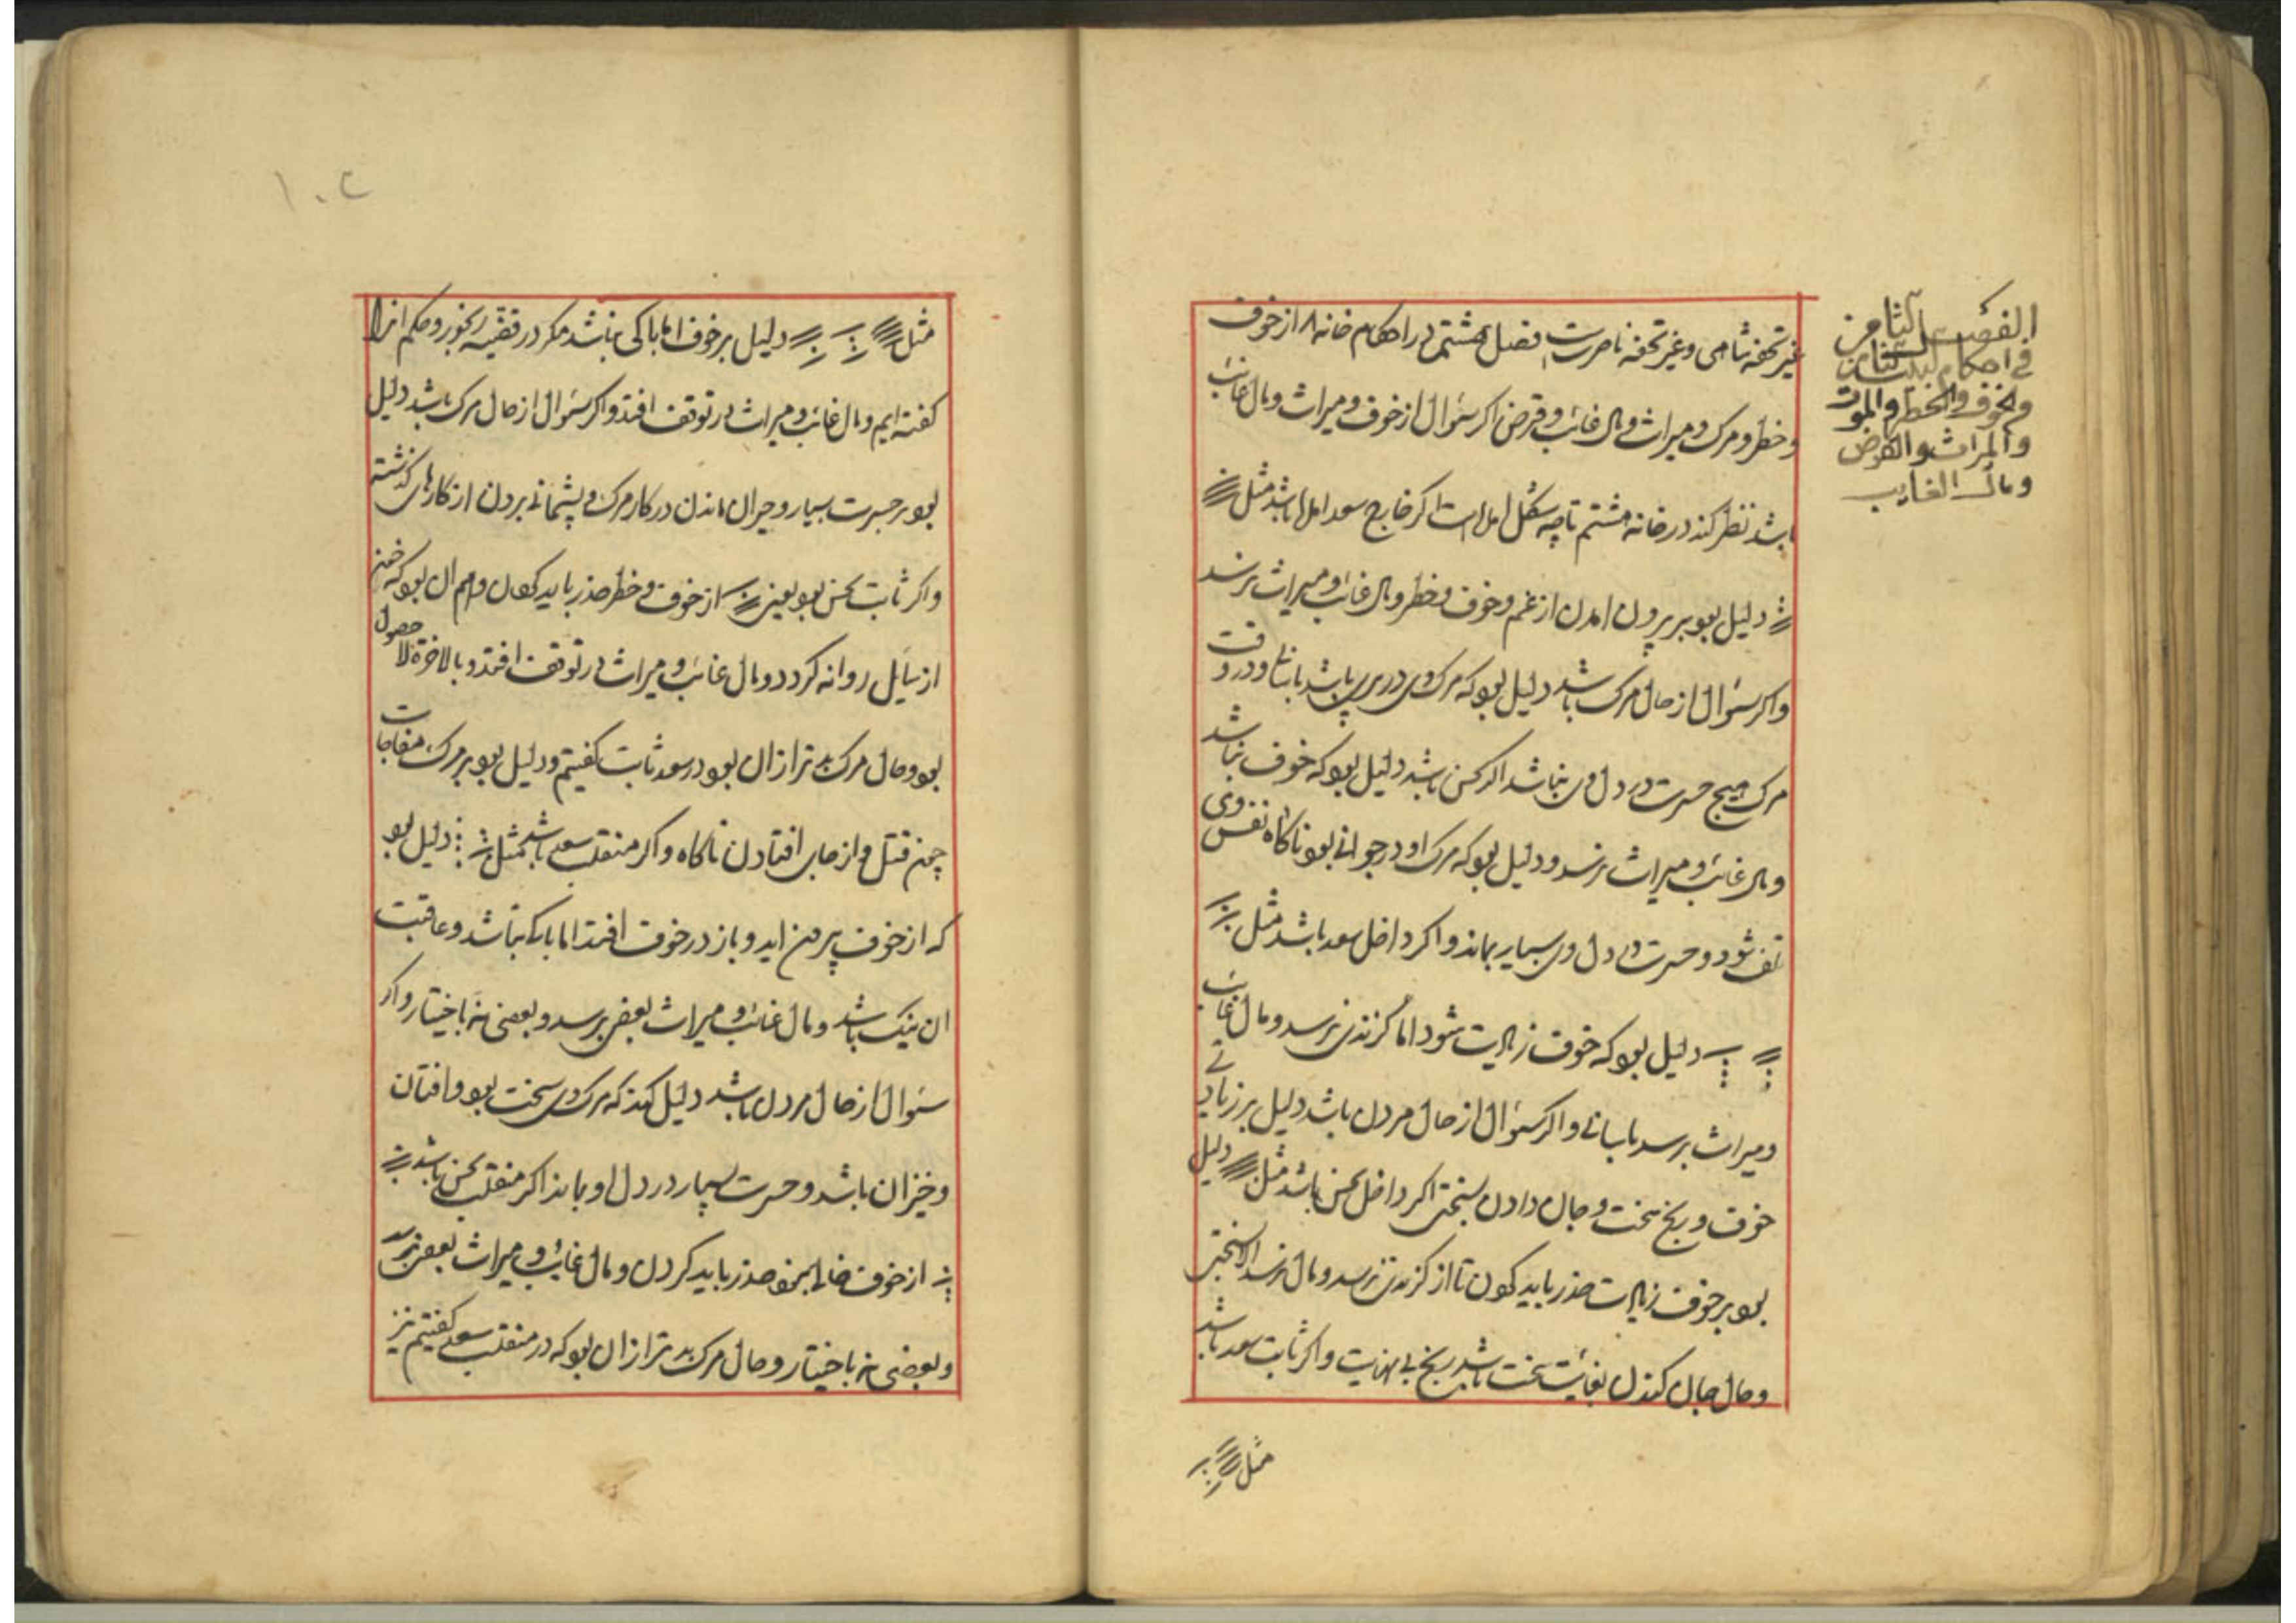 الفصل الثامن
في احكام البيت الثامن
والخوف والخطر والموت
والميراث والقرض
ومال الغايب
غیر تحفه شاهی وغیر تحفه ناصریست فصل هشتم در احکام خانه ۸ از خوف
وخطر ومرک ومیراث ومال غائب وقرض اکر سئوال از خوف ومیراث ومال غائب
باشد نظر کند در خانه هشتم تا چه شکل امده است اکر خارج سعد امده باشد مثل
دلیل بود بر بیرون امدن از غم وخوف وخطر ومال غائب ومیراث نرسد
واکر سئوال از حال مرک باشد دلیل بود که مرک وی در پیری باشد ودر وقت
مرک هیچ حسرت در دل وی نباشد اکر نحس باشد دلیل بود که خوف نباشد
ومال غائب ومیراث نرسد ودلیل بود که مرک او در جوانی بود ناکاه نفس وی
تلف شود وحسرت در دل وی بسیار بماند واکر داخل سعد باشد مثل
دلیل بود که خوف زیادت شود اما کزندی نرسد ومال غائب
ومیراث برسد باسانی واکر سئوال از حال مردن باشد دلیل بر زیادتی
خوف ورنج سخت وجان دادن بسختی اکر داخل نحس باشد مثل دلیل
بود بر خوف زیادت حذر باید کردن تا از کزندی نرسد ومال نرسد الا بسختی
وحال جان کندن بغایت سخت باشد رنج بی نهایت واکر ثابت سعد باشد
مثل
۱۰۲
مثل دلیل بر خوف اما باکی نباشد مکر در قضیه رنجور وحکم انرا
کفته ایم ومال غائب ومیراث در توقف افتد واکر سئوال از حال مرک باشد دلیل
بود بر حسرت بسیار وحیران ماندن در کار مرک وپشمانی بردن از کارهای کذشته
واکر ثابت نحس بود یعنی از خوف وخطر حذر باید کردن وبیم ان بود که خون
از سایل روانه کردد ومال غائب ومیراث در توقف افتد وبالاخرة لا حصول
بود وحال مرک بدتر از ان بود در سعد ثابت کفتیم ودلیل بود بر مرک مفاجات
چون قتل واز جای افتادن ناکاه واکر منقلب سعد باشد مثل دلیل بود
که از خوف بیرون اید وباز در خوف افتد اما باک نباشد وعاقبت
ان نیک باشد ومال غائب ومیراث بعضی برسد وبعضی نه باختیار واکر
سئوال از حال مردن باشد دلیل کند که مرک وی سخت بود وافتان
وخیزان باشد وحسرت بسیار در دل او بماند اکر منقلب نحس باشد
از خوف خالی نبود حذر باید کردن ومال غائب ومیراث بعضی برسد
وبعضی نه باختیار وحال مرک بدتر از ان بود که در منقلب سعد کفتیم نیز